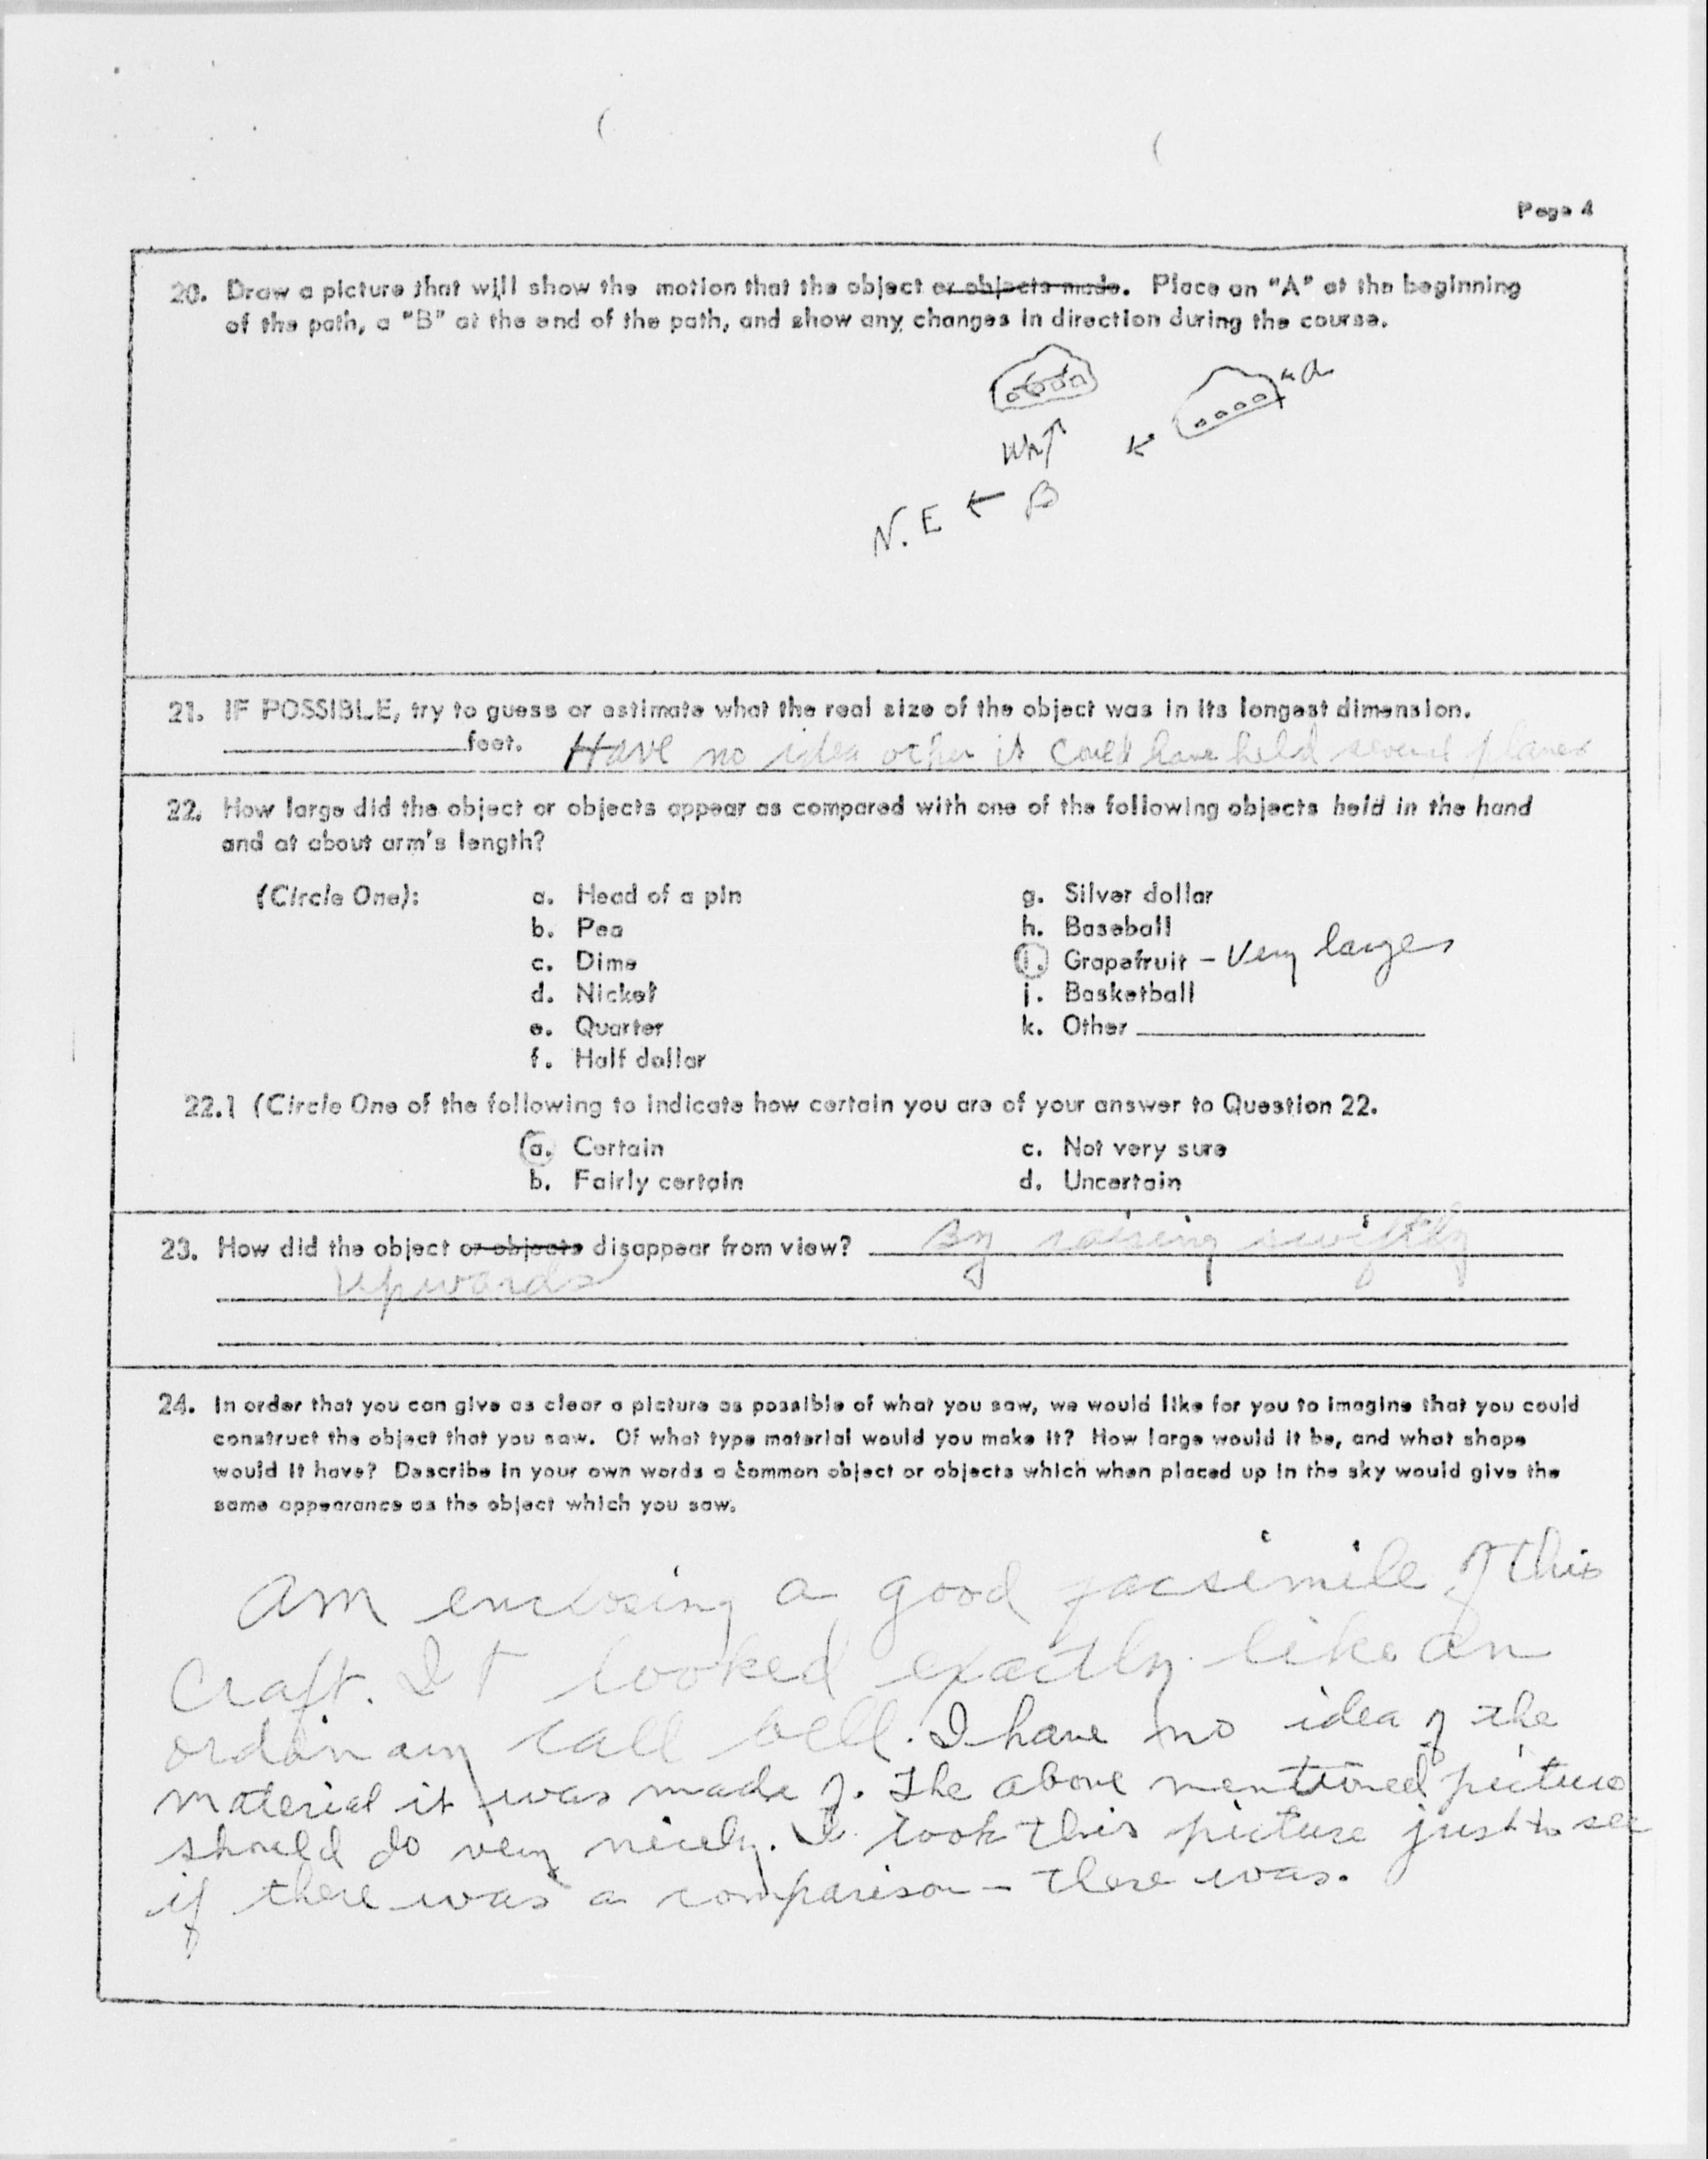 Page 4
20. Draw a picture that will show the motion that the object or objects made. Place an "A" at the beginning
of the path, a "B" at the end of the path, and show any changes in direction during the course.
"a
up
B
N.E
21. IF POSSIBLE, try to guess or estimate what the real size of the object was in its longest dimension.
feet. Have no idea other it could have held several planes
22. How large did the object or objects appear as compared with one of the following objects held in the hand
and at about arm's length?
(Circle One): a. Head of a pin g. Silver dollar
b. Pea h. Baseball
c. Dime i. Grapefruit - Very large
d. Nickel j. Basketball
e. Quarter k. Other
f. Half dollar
22.1 (Circle One of the following to indicate how certain you are of your answer to Question 22.
a. Certain c. Not very sure
b. Fairly certain d. Uncertain
23. How did the object or objects disappear from view? By raising swiftly
upwards
24. In order that you can give as clear a picture as possible of what you saw, we would like for you to imagine that you could
construct the object that you saw. Of what type material would you make it? How large would it be, and what shape
would it have? Describe in your own words a common object or objects which when placed up in the sky would give the
same appearance as the object which you saw.
Am enclosing a good facsimile of this
Craft. It looked exactly like an
ordinary call bell. I have no idea of the
material it was made of. The above mentioned picture
should do very nicely. I took this picture just to see
if there was a comparison - there was.